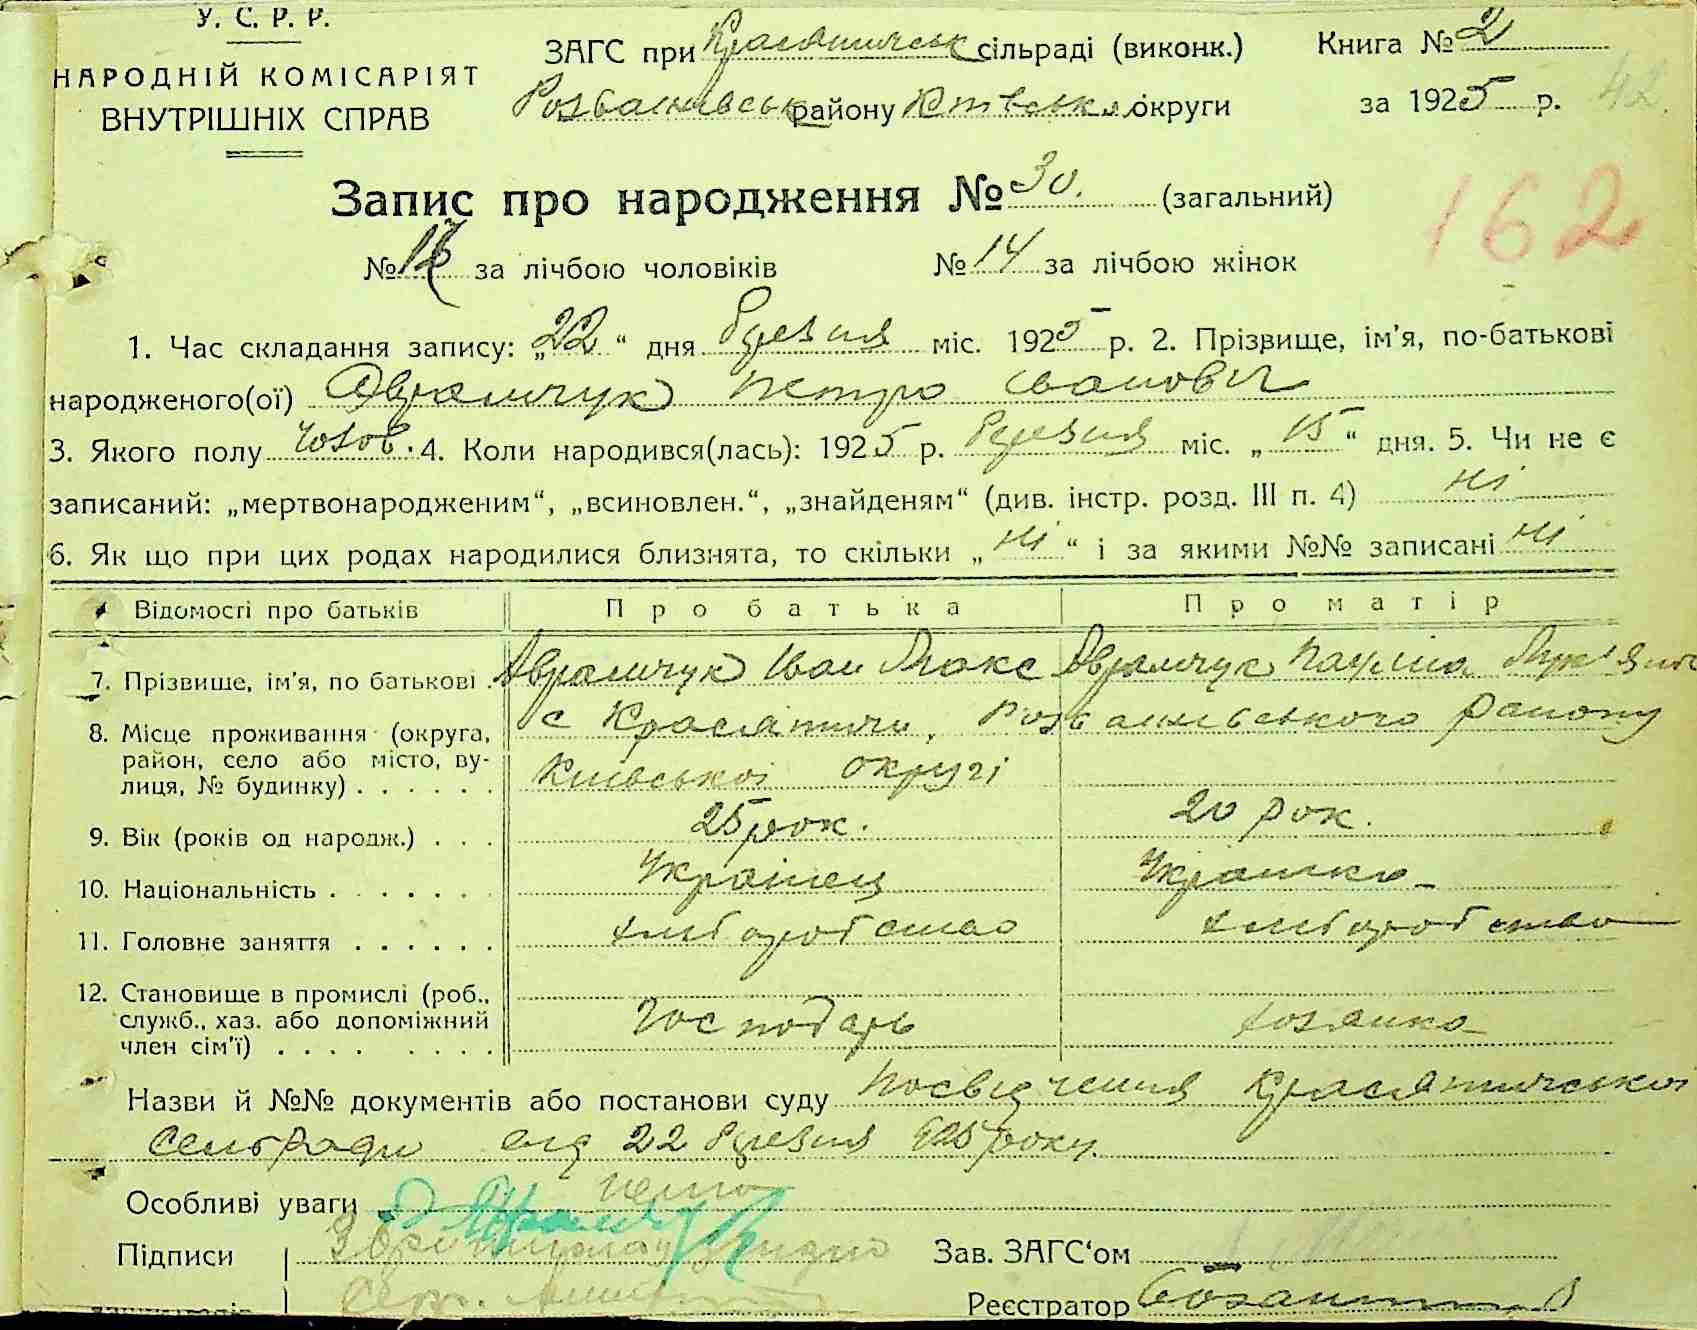 У. С. Р. Р.
НАРОДНІЙ КОМІСАРІЯТ
ВНУТРІШНІХ СПРАВ
ЗАГС при Красятичськ сільраді (виконк.)
Розважівськ району Київської округи
Книга № 2
за 1925 р.
42
Запис про народження № 30. (загальний)
162
№ 16 за лічбою чоловіків № 14 за лічбою жінок
1. Час складання запису: „22“ дня березня міс. 1925 р. 2. Прізвище, ім'я, по-батькові
народженого(ої) Аврамчук Петро Іванович
3. Якого полу чолов. 4. Коли народився(лась): 1925 р. березня міс. „15“ дня. 5. Чи не є
записаний: „мертвонародженим“, „всиновлен.“, „знайденям“ (див. інстр. розд. III п. 4) ні
6. Як що при цих родах народилися близнята, то скільки „ні“ і за якими №№ записані ні
Відомості про батьків Про батька Про матір
7. Прізвише, ім'я, по батькові . Аврамчук Іван Макс Аврамчук Пауліна Лук'янів
8. Місце проживання (округа, район, село або місто, ву-
лиця, № будинку) . . . . . . с Красятичи, Розважівського району
Київської округі
9. Вік (років од народж.) . . . 25 рок. 20 рок.
10. Національність . . . . . . . Українець Українка
11. Головне заняття . . . . . . хліборобство хліборобство
12. Становище в промислі (роб.,
служб., хаз. або допоміжний
член сім'ї) . . . . . . . . . Господарь хозяйка
Назви й №№ документів або постанови суду Посвідчення Красятичської
сельради від 22 березня 925 року.
Особливі уваги нема
Підписи
Зав. ЗАГС'ом
Реєстратор